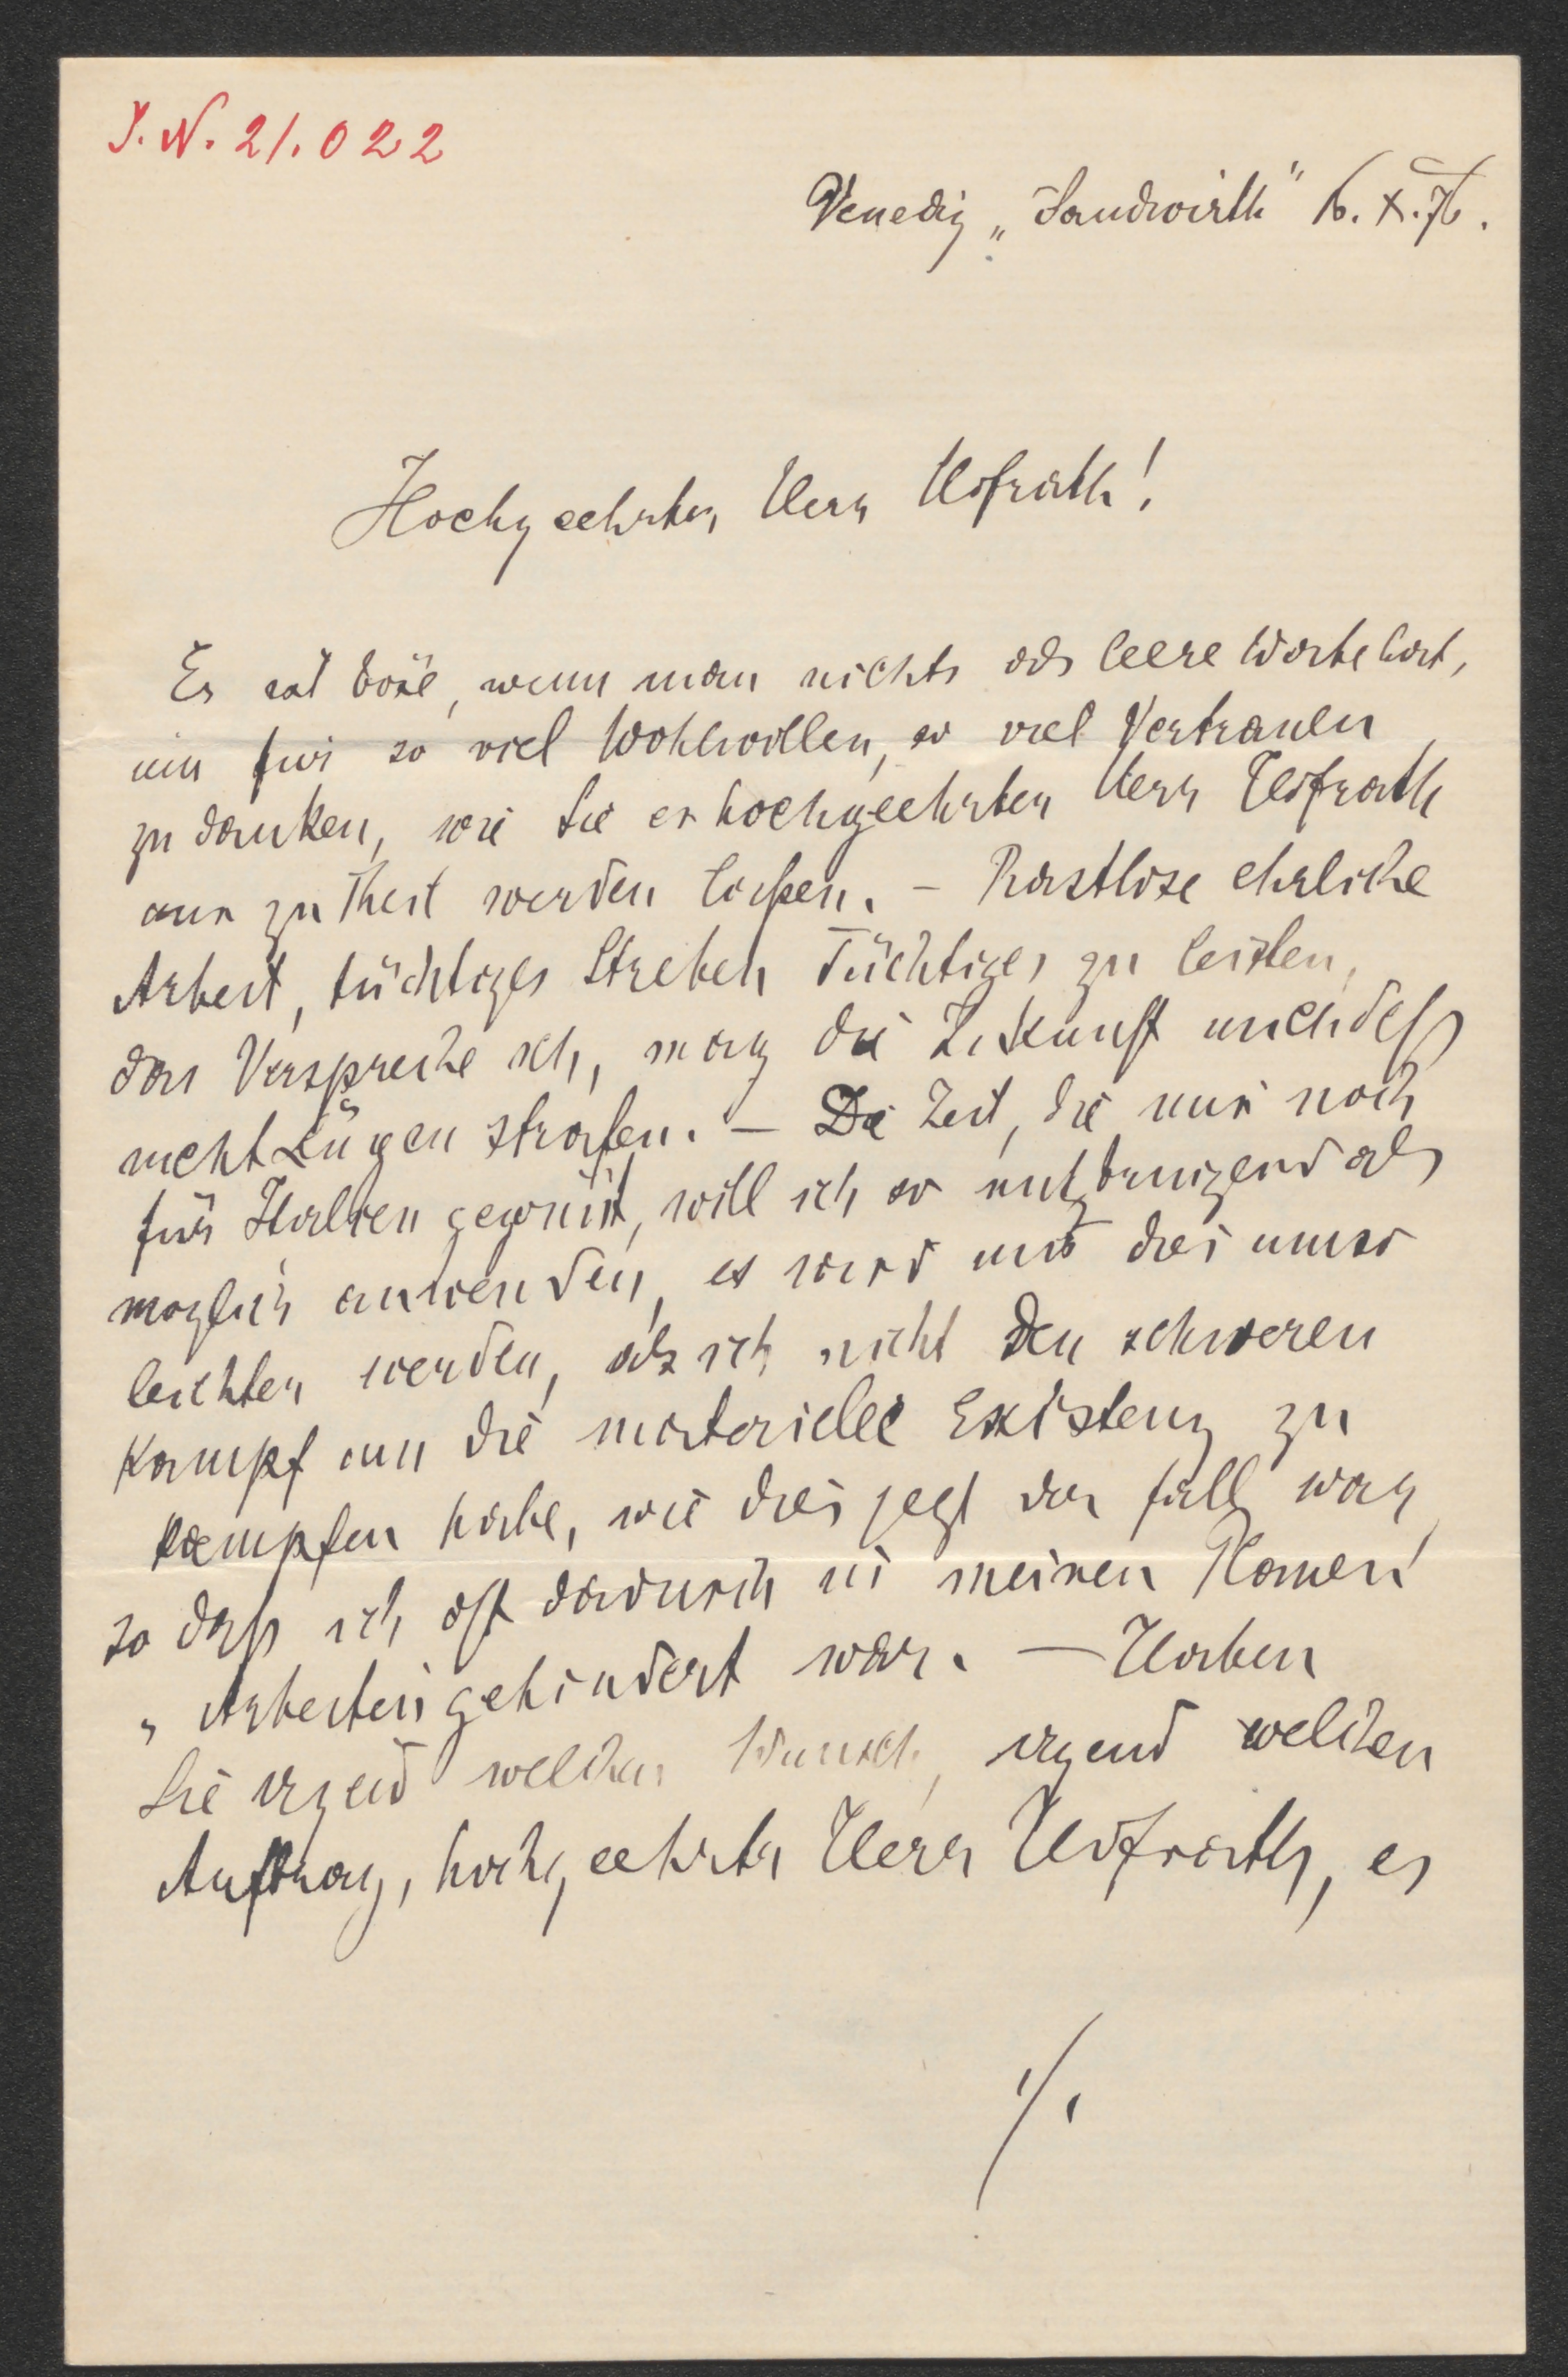 J.N. 21.022
Venedig „Sandwirth" 16. X. 76.
Hochgeehrter Herr Hofrath!
Es ist böse, wenn man nichts als leere Worte hat,
um für so viel Wohlwollen, so viel Vertrauen
zu danken, wie Sie es hochgeehrter Herr Hofrath
mir zu Theil werden ließen. – Rastlose ehrliche
Arbeit, tüchtiges Streben Tüchtiges zu leisten,
das Verspreche ich, mag die Zukunft mich deß
nicht Lügen strafen. – Die Zeit, die mir noch
für Italien gegönnt, will ich so nutzbringend als
möglich anwenden, es wird mir dies umso
leichter werden, als ich nicht den schweren
Kampf um die materielle Existenz zu
kaempfen habe, wie dies jetzt der fall war,
so daß ich oft dadurch in meinen
Arbeiten gehindert war. — Haben
Sie irgend welchen Wunsch, irgend welchen
Auftrag, hochgeehrter Herr Hofrath, es
./.